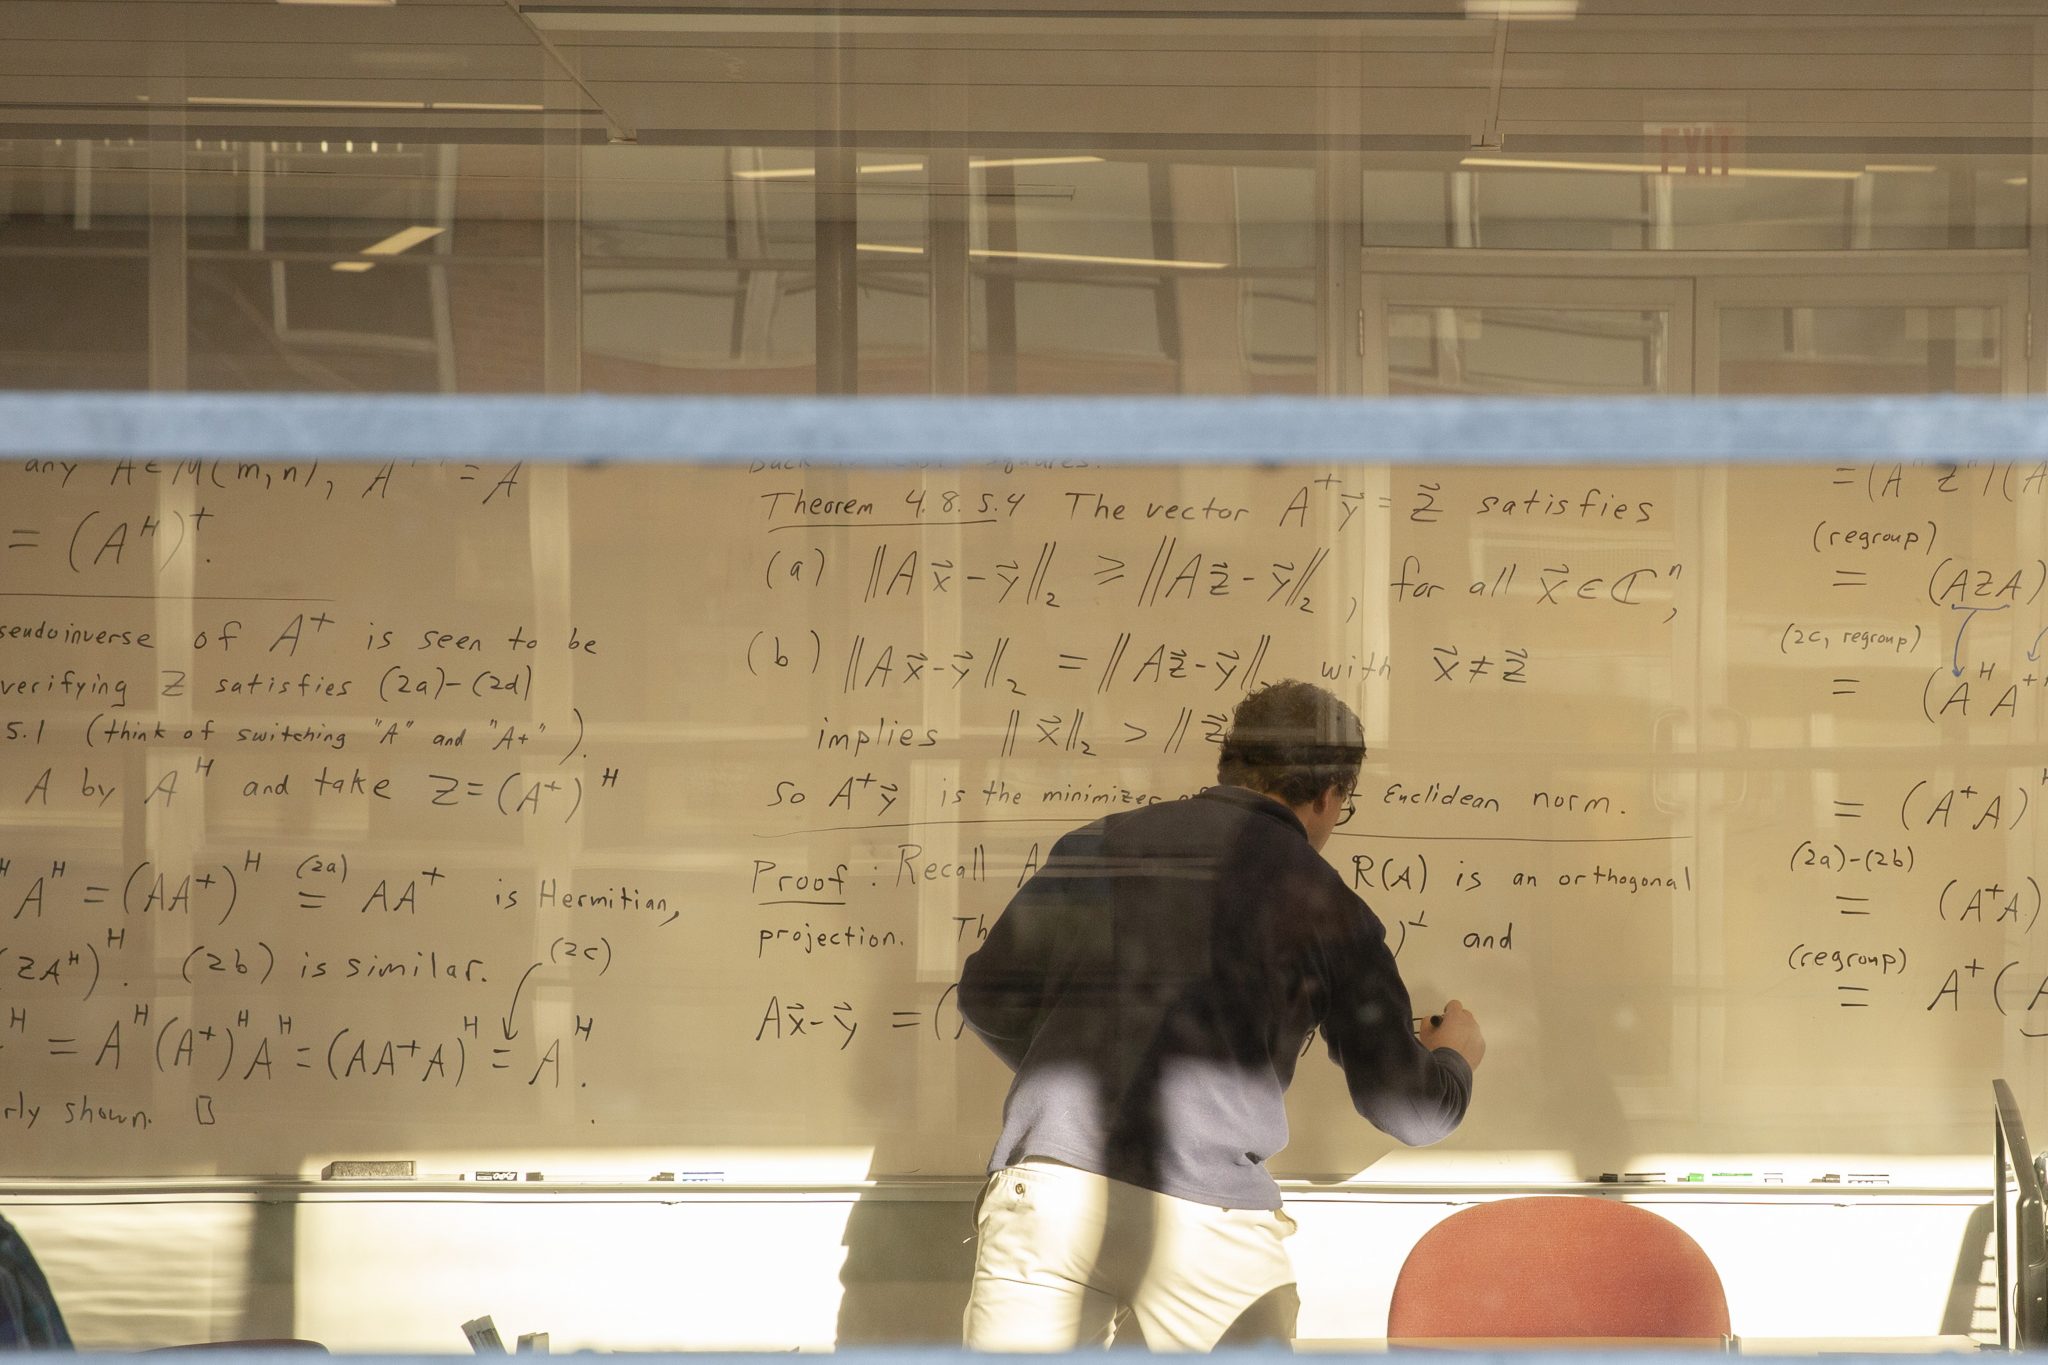 EXIT
any A ∈ M(m,n), = A
= (A^H)^†.
of A^+ is seen to be
verifying Z satisfies (2a)-(2d)
5.1 (think of switching "A" and "A+").
A by A^H and take Z = (A^+)^H
A^H = (AA^+)^H (2a) = AA^+ is Hermitian,
(ZA^H)^H. (2b) is similar. (2c)
^H = A^H (A^+)^H A^H = (AA^+A)^H = A^H.
shown. □
Theorem 4.8.5.4 The vector A^+ y⃗ = z⃗ satisfies
(a) ||A x⃗ - y⃗||_2 ≥ ||A z⃗ - y⃗||_2, for all x⃗ ∈ ℂ^n,
(b) ||A x⃗ - y⃗||_2 = ||A z⃗ - y⃗||_2 with x⃗ ≠ z⃗
implies ||x⃗||_2 > ||z⃗
So A^+ y⃗ is the minimizer of Euclidean norm.
Proof: Recall A R(A) is an orthogonal
projection. )^⊥ and
A x⃗ - y⃗ = (
(regroup)
= (AZA)
(2c, regroup)
= (A^H A^+
= (A^+ A)^H
(2a)-(2b)
= (A^+ A)
(regroup)
= A^+ (